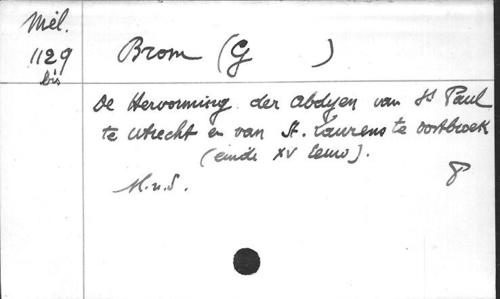 Mél.
1129
bis
Brom (G )
De Hervorming der abdyen van St Paul
te Utrecht en van St. Laurens te Oostbroek
(einde XV eeuw).
8